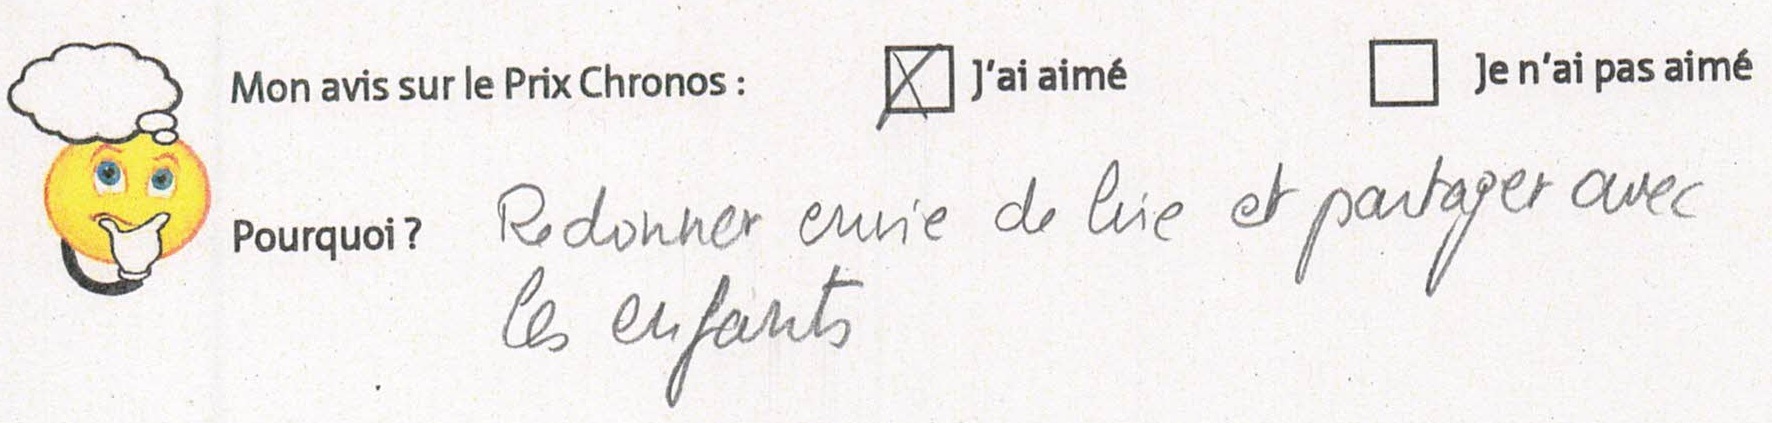 Mon avis sur le Prix Chronos : J'ai aimé Je n'ai pas aimé
Pourquoi ? Redonner envie de lire et partager avec
les enfants